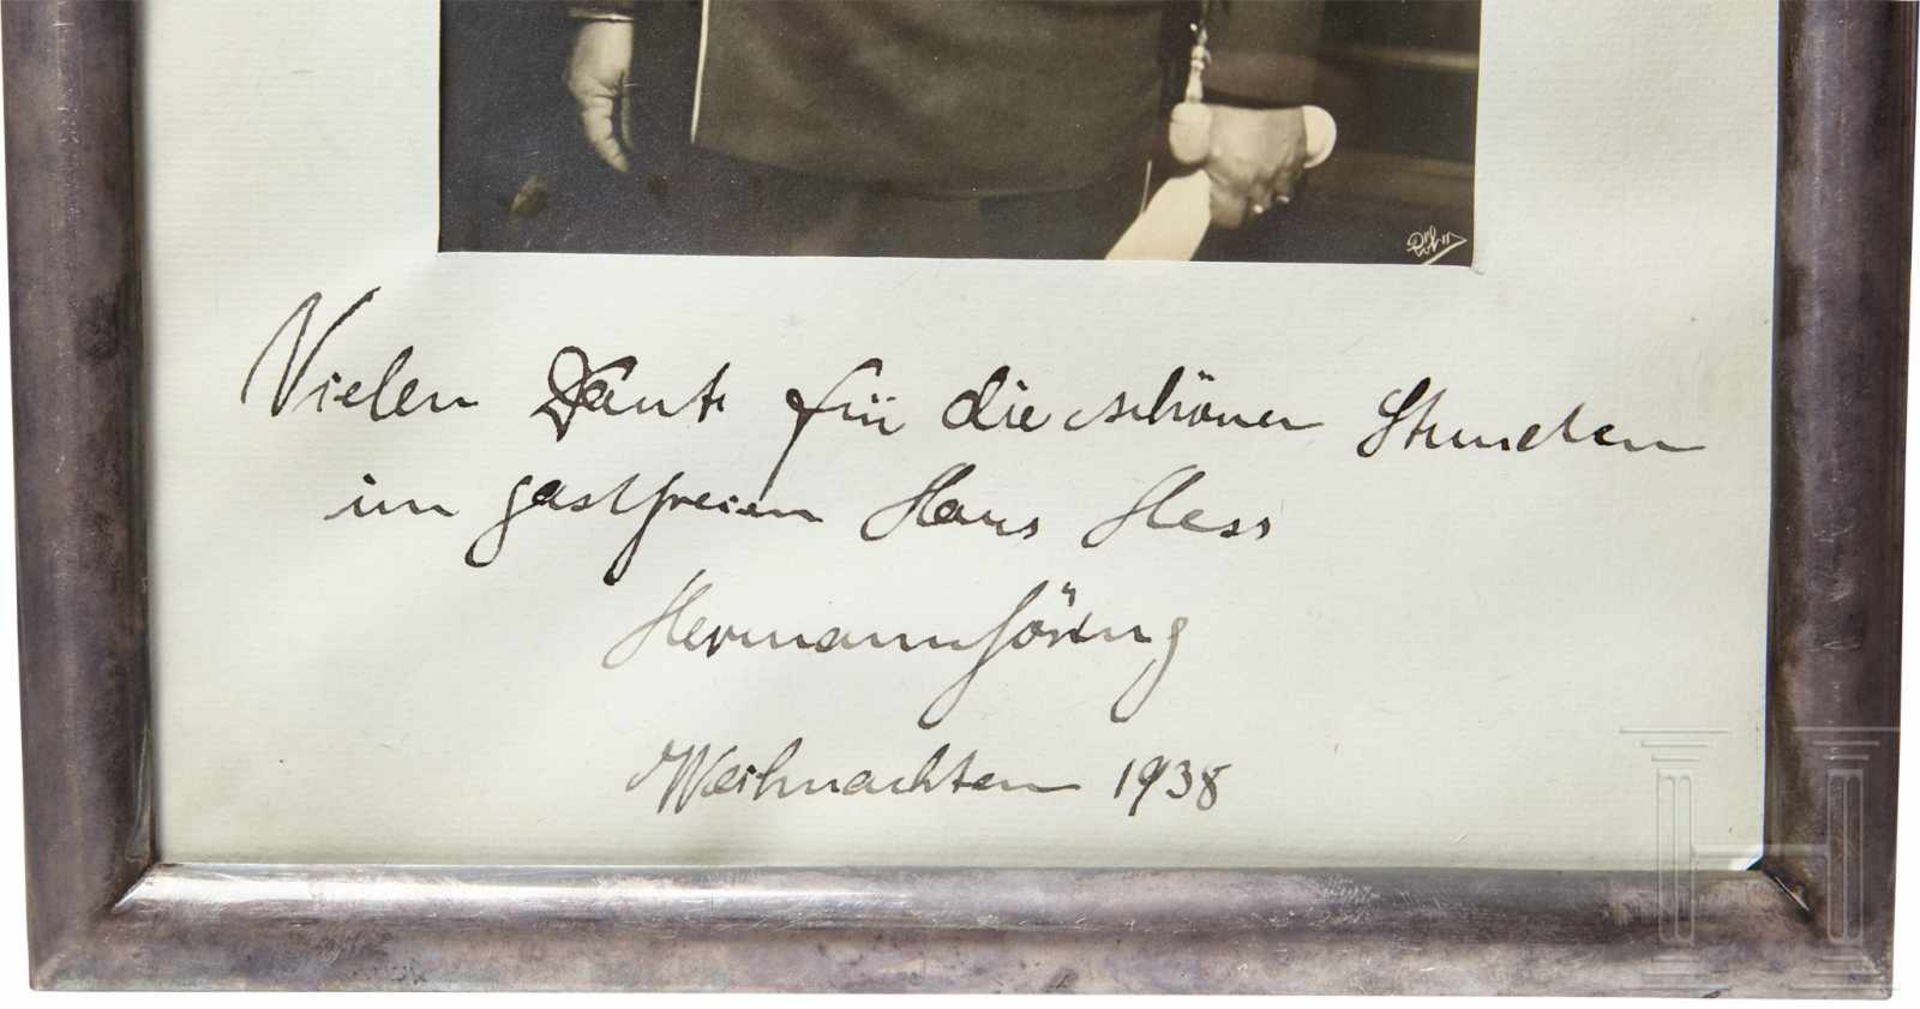 Vielen Dank für die schönen Stunden
im gastfreien Haus Hess
Hermann Göring
Weihnachten 1938